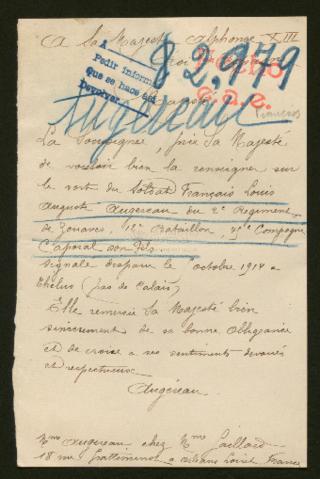 A Sa Majesté Alphonse XIII
A
Pedir inform
que se hace de
Devolver
82.979
Augereau
Frances
La Soussignée, prie Sa Majesté
de vouloir bien la renseigner sur
le sort du Soldat Français Louis
Auguste Augereau du 2e Regiment
de Zouaves, Bataillon, Compagnie
Caporal son fils
signale disparu le octobre 1914 a
(pas de Calais)
Elle remercie Sa Majesté bien
sincerement de sa bonne obligeance
et de croire a ses sentiments devoués
et respectueux
Augereau
Mme Augereau chez Mme Gaillard
18 rue a Orléans Loiret France